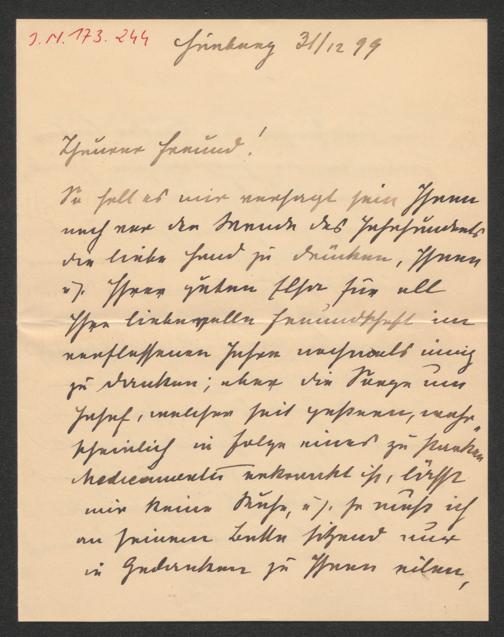 J.N. 173.244
Hünburg 31/12 99
Theurer Freund!
So soll es mir versagt sein Ihnen
noch vor der Wende des Jahrhunderts
die liebe Hand zu drücken, Ihnen
u. Ihrer guten Elsa für all
Ihre liebevolle Freundschaft im
verflossenen Jahre nochmals innig
zu danken; aber die Sorge um
Josef, welcher seit gestern, wahr-
scheinlich in Folge eines zu starken
Medicamentes erkrankt ist, lässt
mir keine Ruhe, u. so muss ich
an seinem Bette sitzend nur
in Gedanken zu Ihnen eilen,